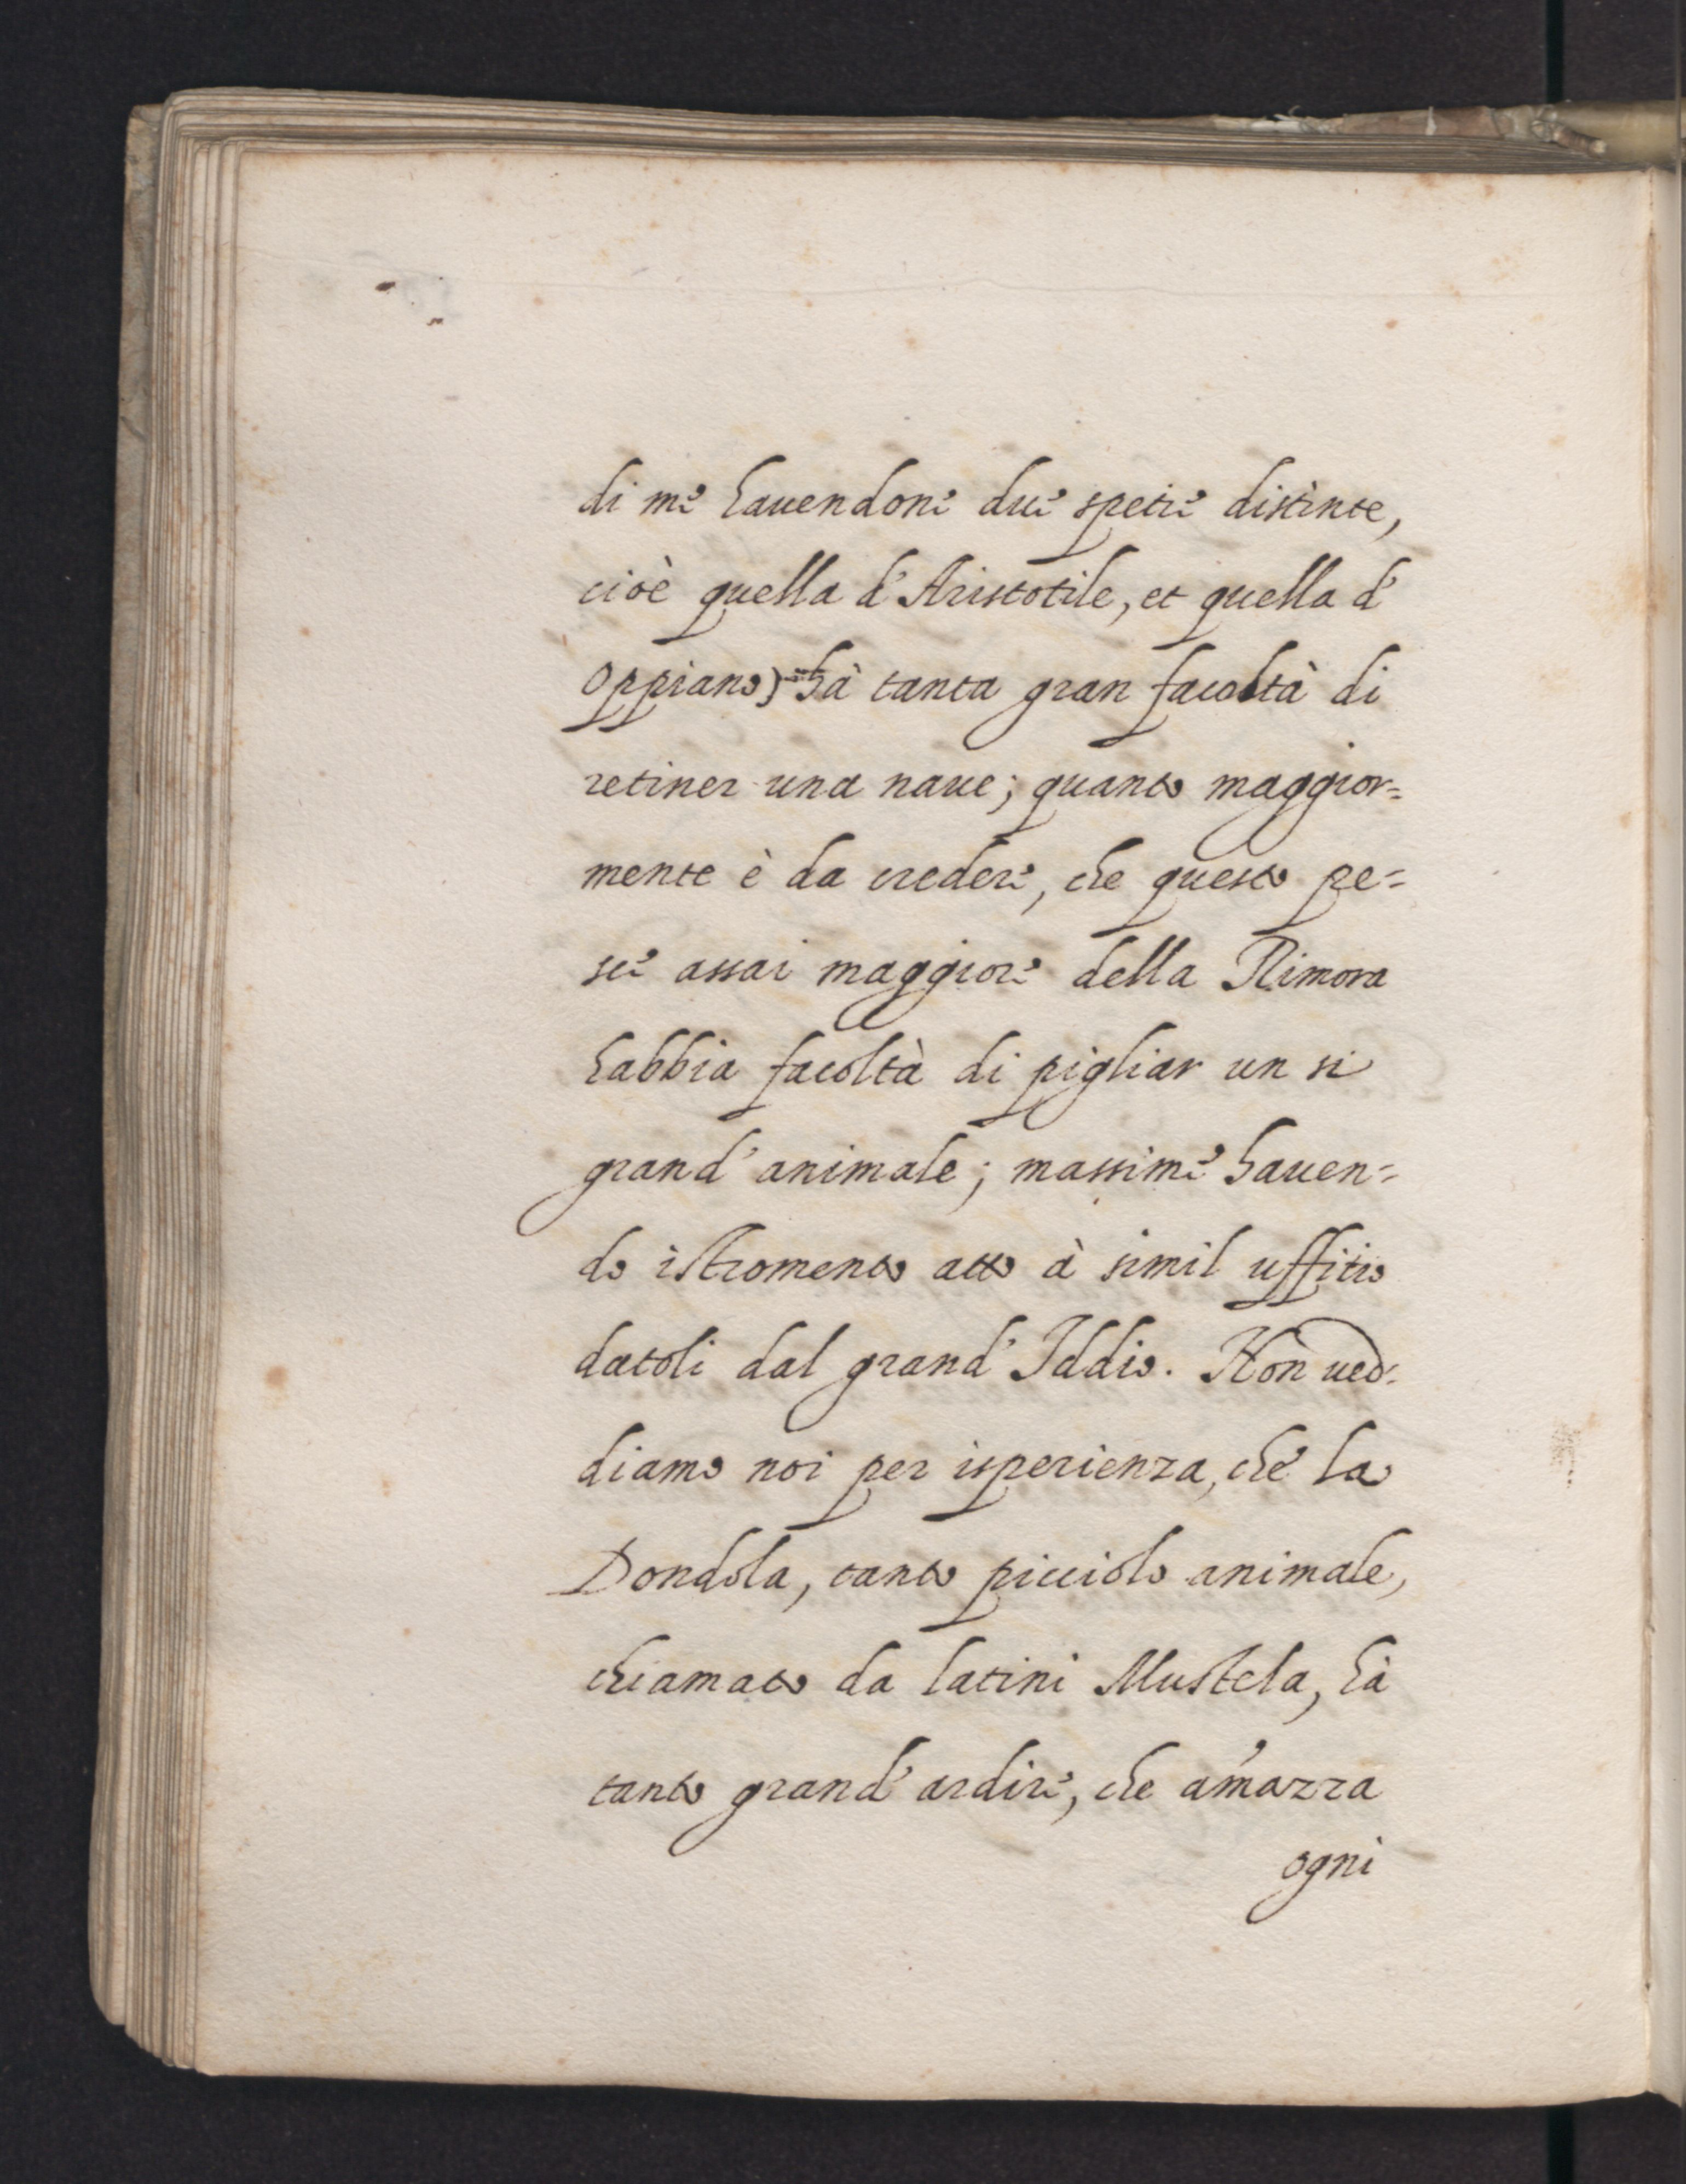 di me hauendone due spetie distinte,
cioè quella d'Aristotile, et quella d'
Oppiano) hà tanta gran facoltà di
retiner una naue; quanto maggior=
mente è da credere, che questo pe=
sce assai maggiore della Rimora
habbia facoltà di pigliar un si
grand' animale; massime hauen=
do istromento atto à simil uffitio
datoli dal grand' Iddio. Non ued=
diamo noi per isperienza, che la
Dondola, tanto picciolo animale,
chiamato da latini Mustela, hà
tanto grand' ardire, che am̃azza
ogni